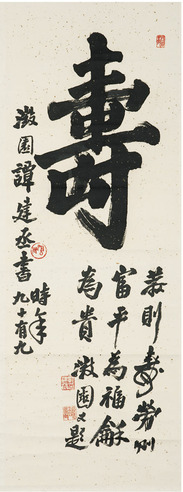 壽
恭則壽勞則
富平為福龢
為貴澂園又題
澂園譚建丞書時年
九十有九